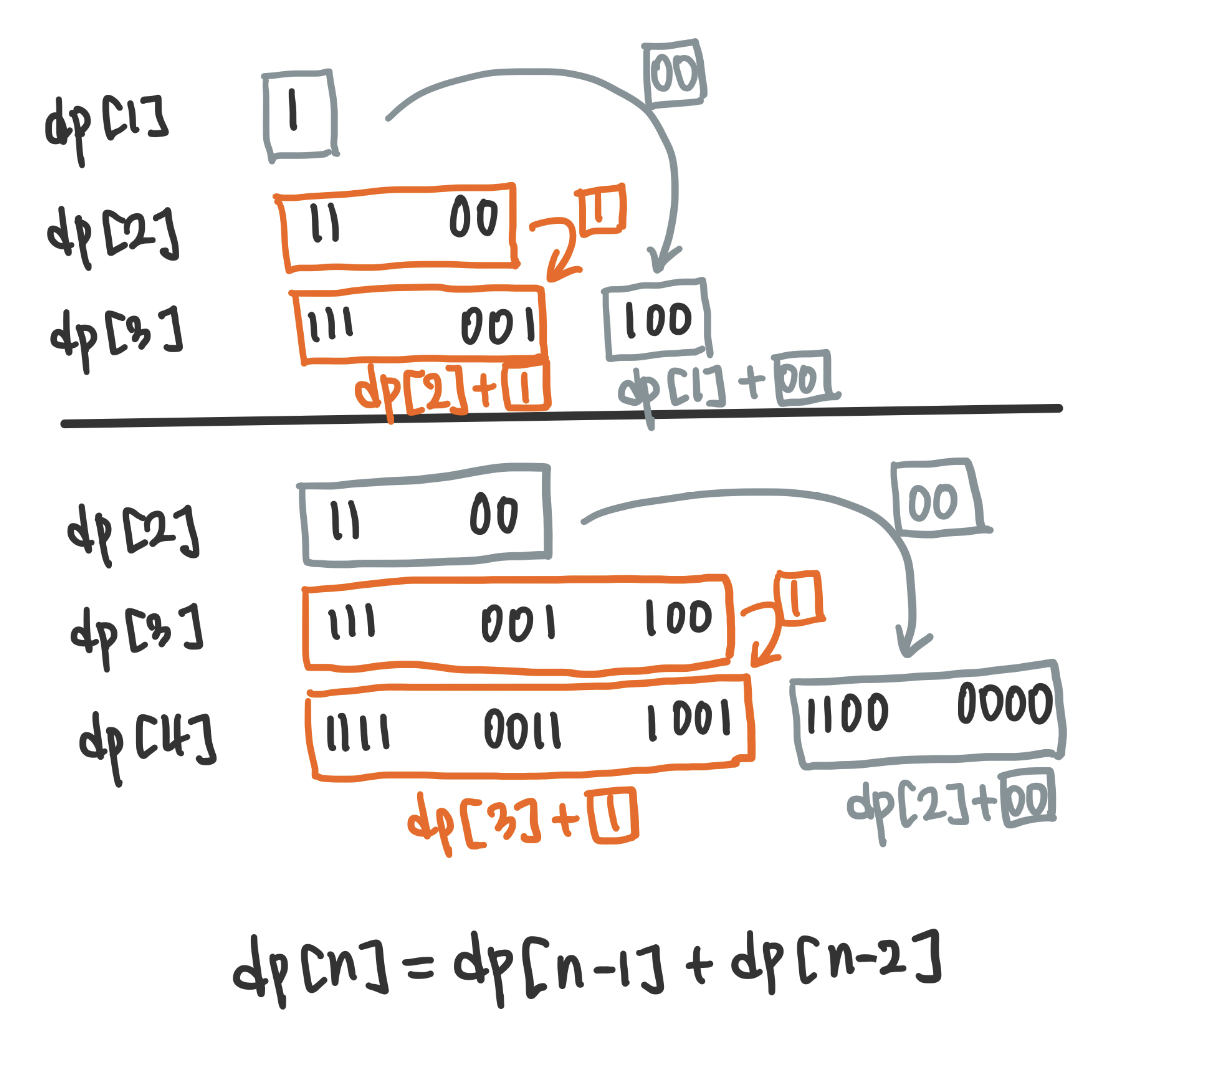 dp[1] 1 00
dp[2] 11 00 1
dp[3] 111 001 100
dp[2]+1 dp[1]+00
dp[2] 11 00 00
dp[3] 111 001 100 1
dp[4] 1111 0011 1001 1100 0000
dp[3]+1 dp[2]+00
dp[n]=dp[n-1]+dp[n-2]